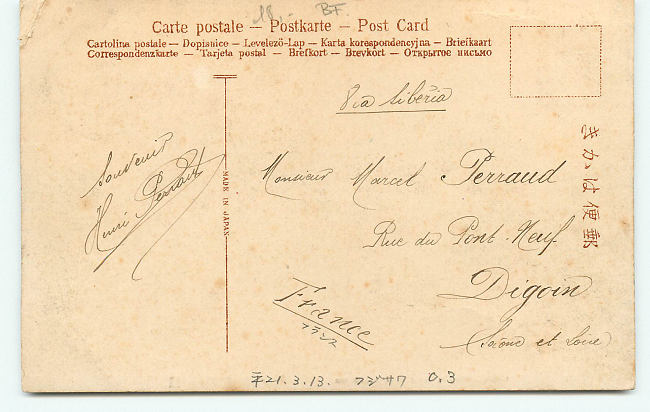 18. BF.
Carte postale — Postkarte — Post Card
Cartolina postale — Dopisnice — Levelező-Lap — Karta korespondencyjna — Briefkaart
Correspondenzkarte — Tarjeta postal — Brefkort — Brevkort — Открытое письмо
Via Siberia
きかは便郵
Souvenir
Henri Perraud
MADE IN JAPAN
Monsieur Marcel Perraud
Rue du Pont-Neuf
Digoin
(Saone et Loire)
France
フランス
平21.3.13. フジサワ 0.3